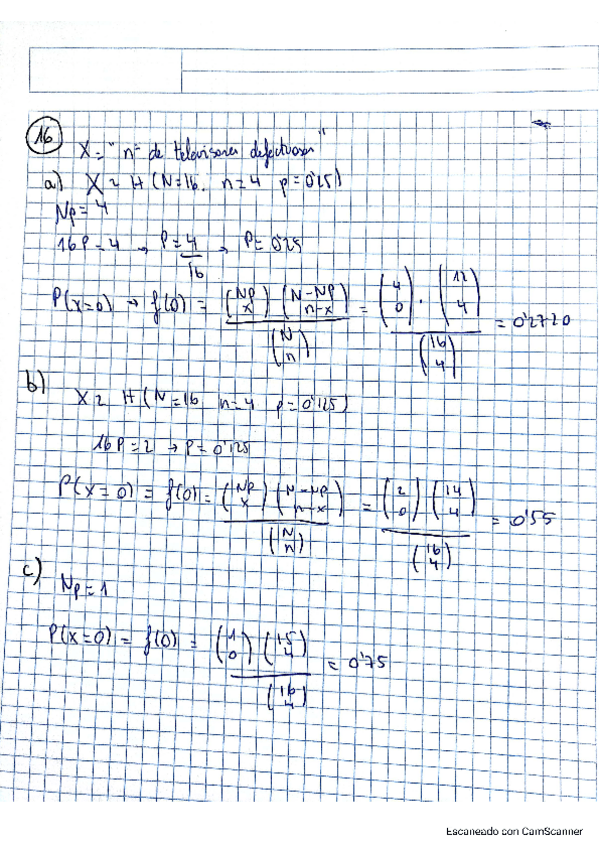 16
X = "nº de televisores defectuosos"
a) X ≈ H (N=16, n=4 p=0'25)
Np=4
16P=4 → P=4/16 → P=0'25
P(x=0) → f(0) = (Np x) (N-Np n-x) / (N n) = (4 0) · (12 4) / (16 4) = 0'2720
b) X ≈ H (N=16 n=4 p=0'125)
16P=2 → P=0'125
P(x=0) = f(0) = (Np x) (N-Np n-x) / (N n) = (2 0) (14 4) / (16 4) = 0'55
c) Np=1
P(x=0) = f(0) = (1 0) (15 4) / (16 4) = 0'75
Escaneado con CamScanner